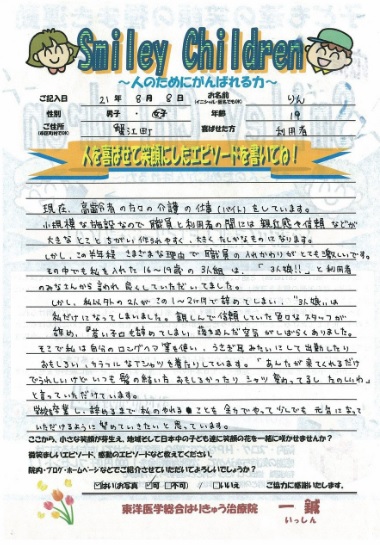 Smiley Children
～人のためにがんばれる力～
ご記入日 21年 8月 8日 お名前 りん
(イニシャル・匿名でもOK)
性別 男子・女子 年齢 19
ご住所 蟹江町 喜ばせた方 利用者
人を喜ばせて笑顔にしたエピソードを書いてね！
現在、高齢者の方の介護の仕事(バイト)をしています。
小規模な施設なので職員と利用者の間には親近感や信頼などが
大きなところとちがい作られやすく、大きくたしかなものになります。
しかし、この半年様々な理由で職員の入れかわりがとても激しいです。
その中でも私を入れた16〜19歳の3人組は、「3人娘!!」と利用者
のみなさんから言われ、良くしていただいてました。
しかし、私以外の2人がこの1〜2か月で辞めてしまい、"3人娘"は
私だけになってしまいました。親しんで信頼していた色々なスタッフが
辞め、「若い子も辞めてしまい落ち込んだ空気がしばらくありました。
そこで私は自分のロングヘアーを使い、うさぎ耳みたいにして出勤したり
おもしろい、カラフルなTシャツを着たりしています。「あんたが来てくれるだけ
でうれしいけど、いつも髪の結い方おもしろかったりシャツ変わってるしたのしいわ」
と言っていただけています。
学校卒業し、辞めるまで私のやれることを全力でやってりんでも元気になって
いただけるように努めていきたいと思っています。
ここから、小さな笑顔が芽生え、地域そして日本中の子ども達に笑顔の花を一緒に咲かせませんか？
微笑ましいエピソード、感動のエピソードなど教えてください。
院内・ブログ・ホームページなどでご紹介させていただいてよろしいでしょうか？
☑はい(お写真 ☑可 □不可) / □いいえ ご協力に感謝いたします。
東洋医学総合はりきゅう治療院 一鍼
いっしん